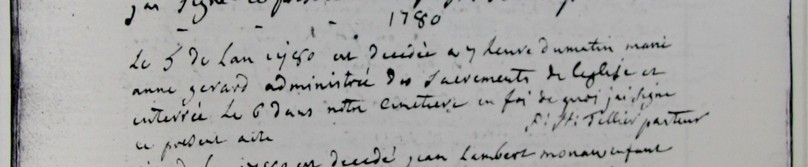 jai signé ce
1780
Le 5 de Lan 1780 est decedée a 7 heure du matin marie
anne gerard administrée des sacrements de leglise et
enterrée Le 6 dans notre cimetiere en foi de quoi jai signe
ce present acte P: H: Tellier pasteur
1780 est decedé jean Lambert enfant